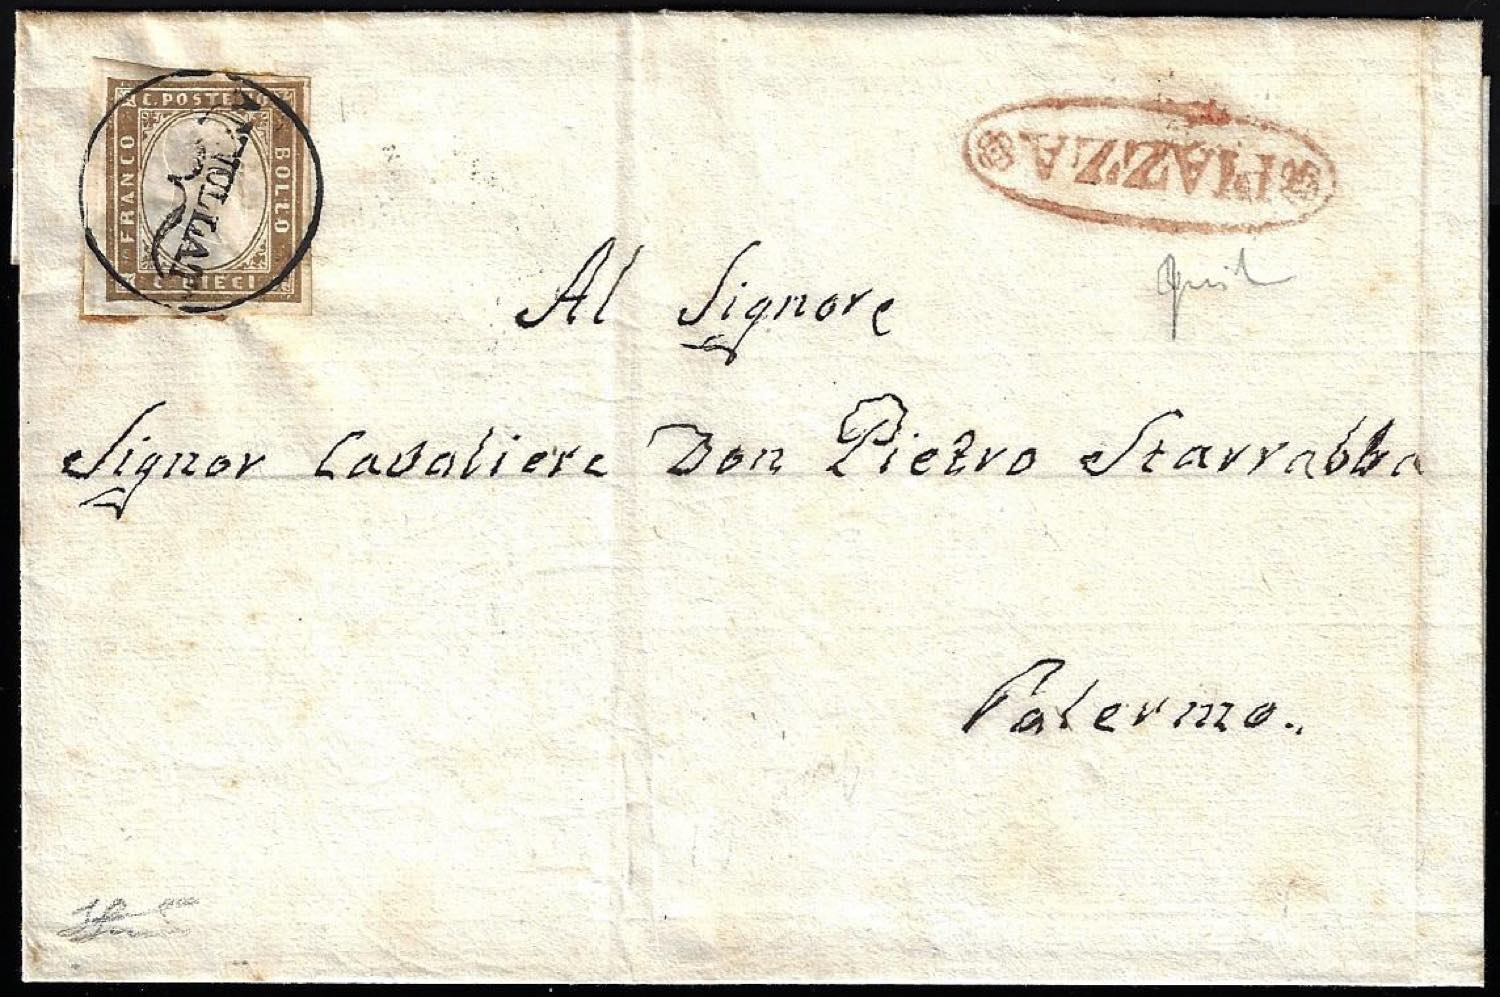 C. POSTE 10
FRANCO
BOLLO
C. DIECI
PIAZZA
Al Signore
Signor Cavaliere Don Pietro Starrabba
Palermo.